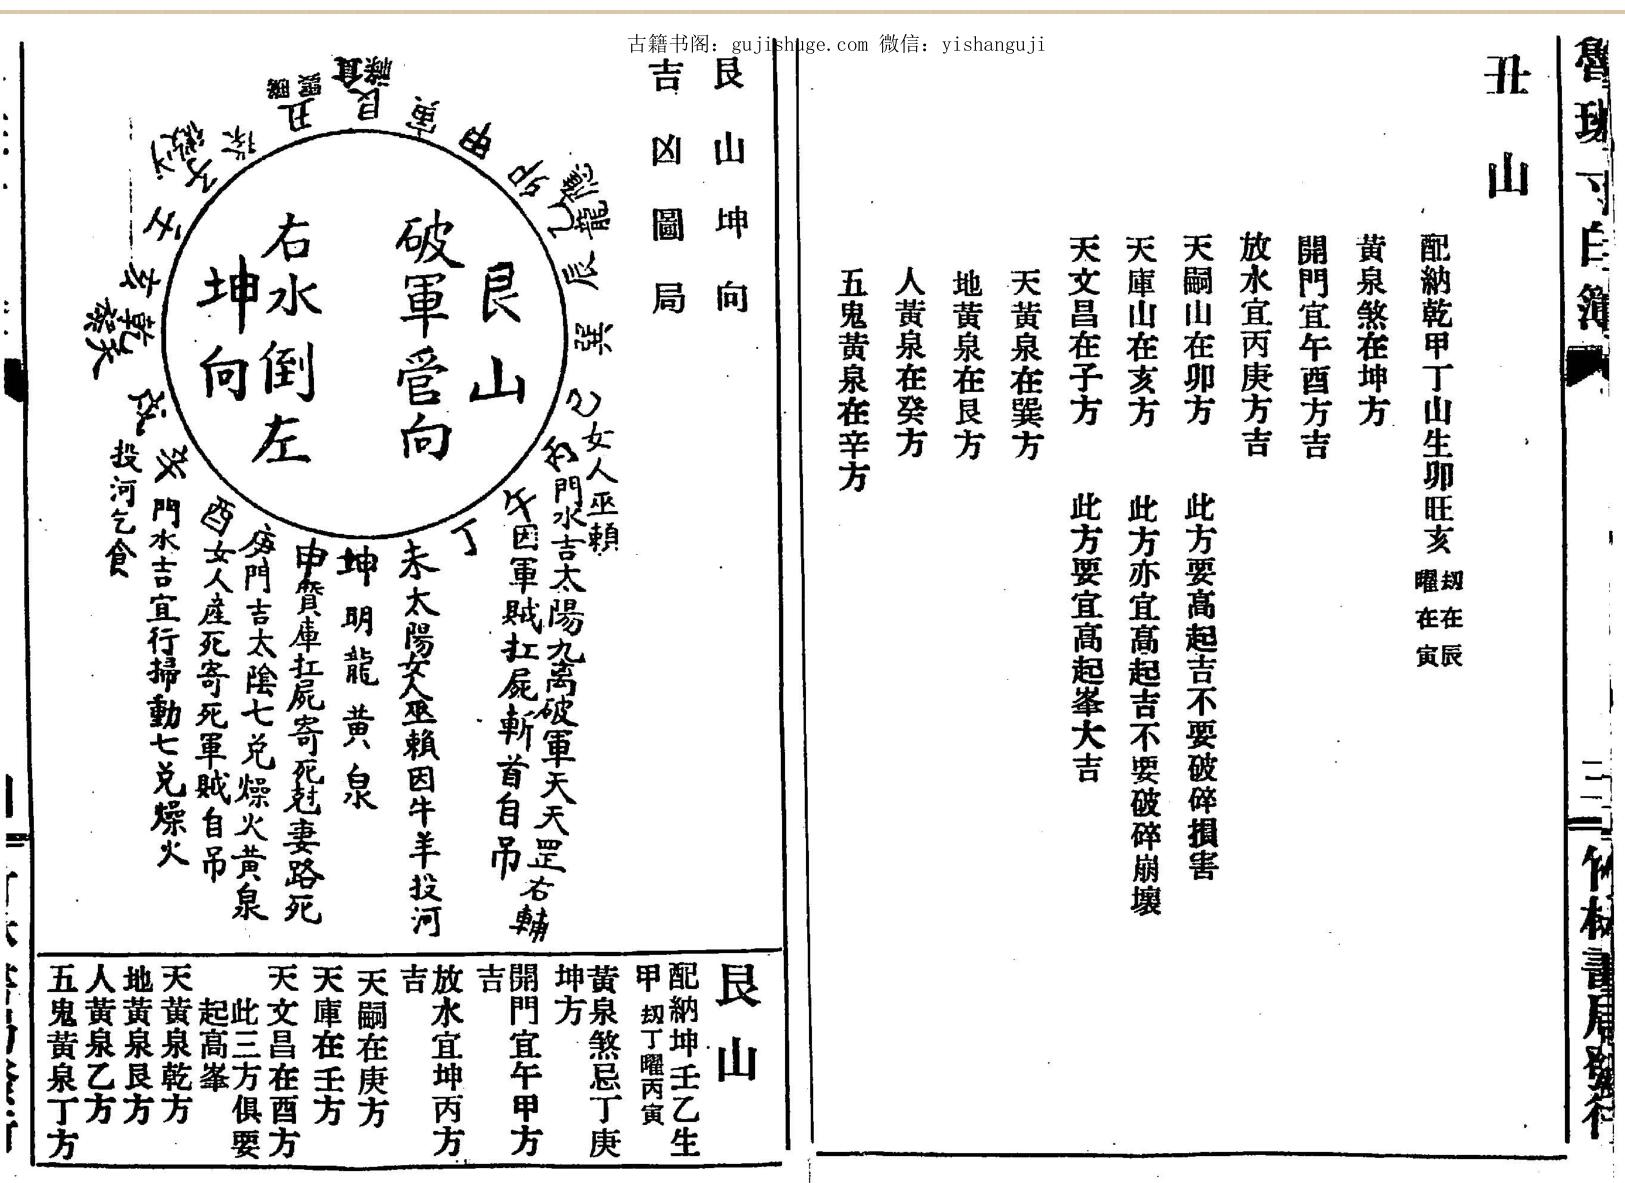 古籍书阁：gujishuge.com 微信：yishanguji
魯班寸白簿
三
竹林書局發行
丑山
配納乾甲丁山生卯旺亥
刼在辰
曜在寅
黃泉煞在坤方
開門宜午酉方吉
放水宜丙庚方吉
天嗣山在卯方 此方要高起吉不要破碎損害
天庫山在亥方 此方亦宜高起吉不要破碎崩壞
天文昌在子方 此方要宜高起峯大吉
天黃泉在巽方
地黃泉在艮方
人黃泉在癸方
五鬼黃泉在辛方
艮山坤向
吉凶圖局
艮山
破軍管向
右水倒左
坤向
丑
艮
寅
甲
卯
乙
辰
巽
巳女人巫賴
丙門水吉太陽九离破軍天天罡右輔
午因軍賊扛屍斬首自吊
丁
未太陽女人巫賴因牛羊投河
坤明龍黃泉
申賢庫扛屍寄死尅妻路死
庚門吉太陰七兑燥火黃泉
酉女人産死寄死軍賊自吊
門水吉宜行掃動七兑燥火
投河乞食
乾
亥
壬
子
艮山
配納坤壬乙生
甲 刼丁曜丙寅
黃泉煞忌丁庚
坤方
開門宜午甲方
吉
放水宜坤丙方
吉
天嗣在庚方
天庫在壬方
天文昌在酉方
此三方俱要
起高峯
天黃泉乾方
地黃泉艮方
人黃泉乙方
五鬼黃泉丁方